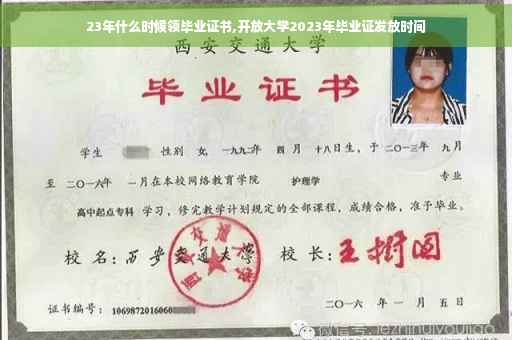 23年什么时候领毕业证书,开放大学2023年毕业证发放时间
西安交通大学
毕业证书
学生 性别 女, 一九九二年 四月 十八日生, 于二〇一三年 九月
至 二〇一六年 一月在本校网络教育学院 护理学 专业
高中起点专科 学习, 修完教学计划规定的全部课程, 成绩合格, 准予毕业。
校 名: 西安交通大学 校 长: 王树国
西安交通大学
证书编号: 1069872016060
二〇一六 年 一 月 五 日
微信号: jezhinuiyoujiao